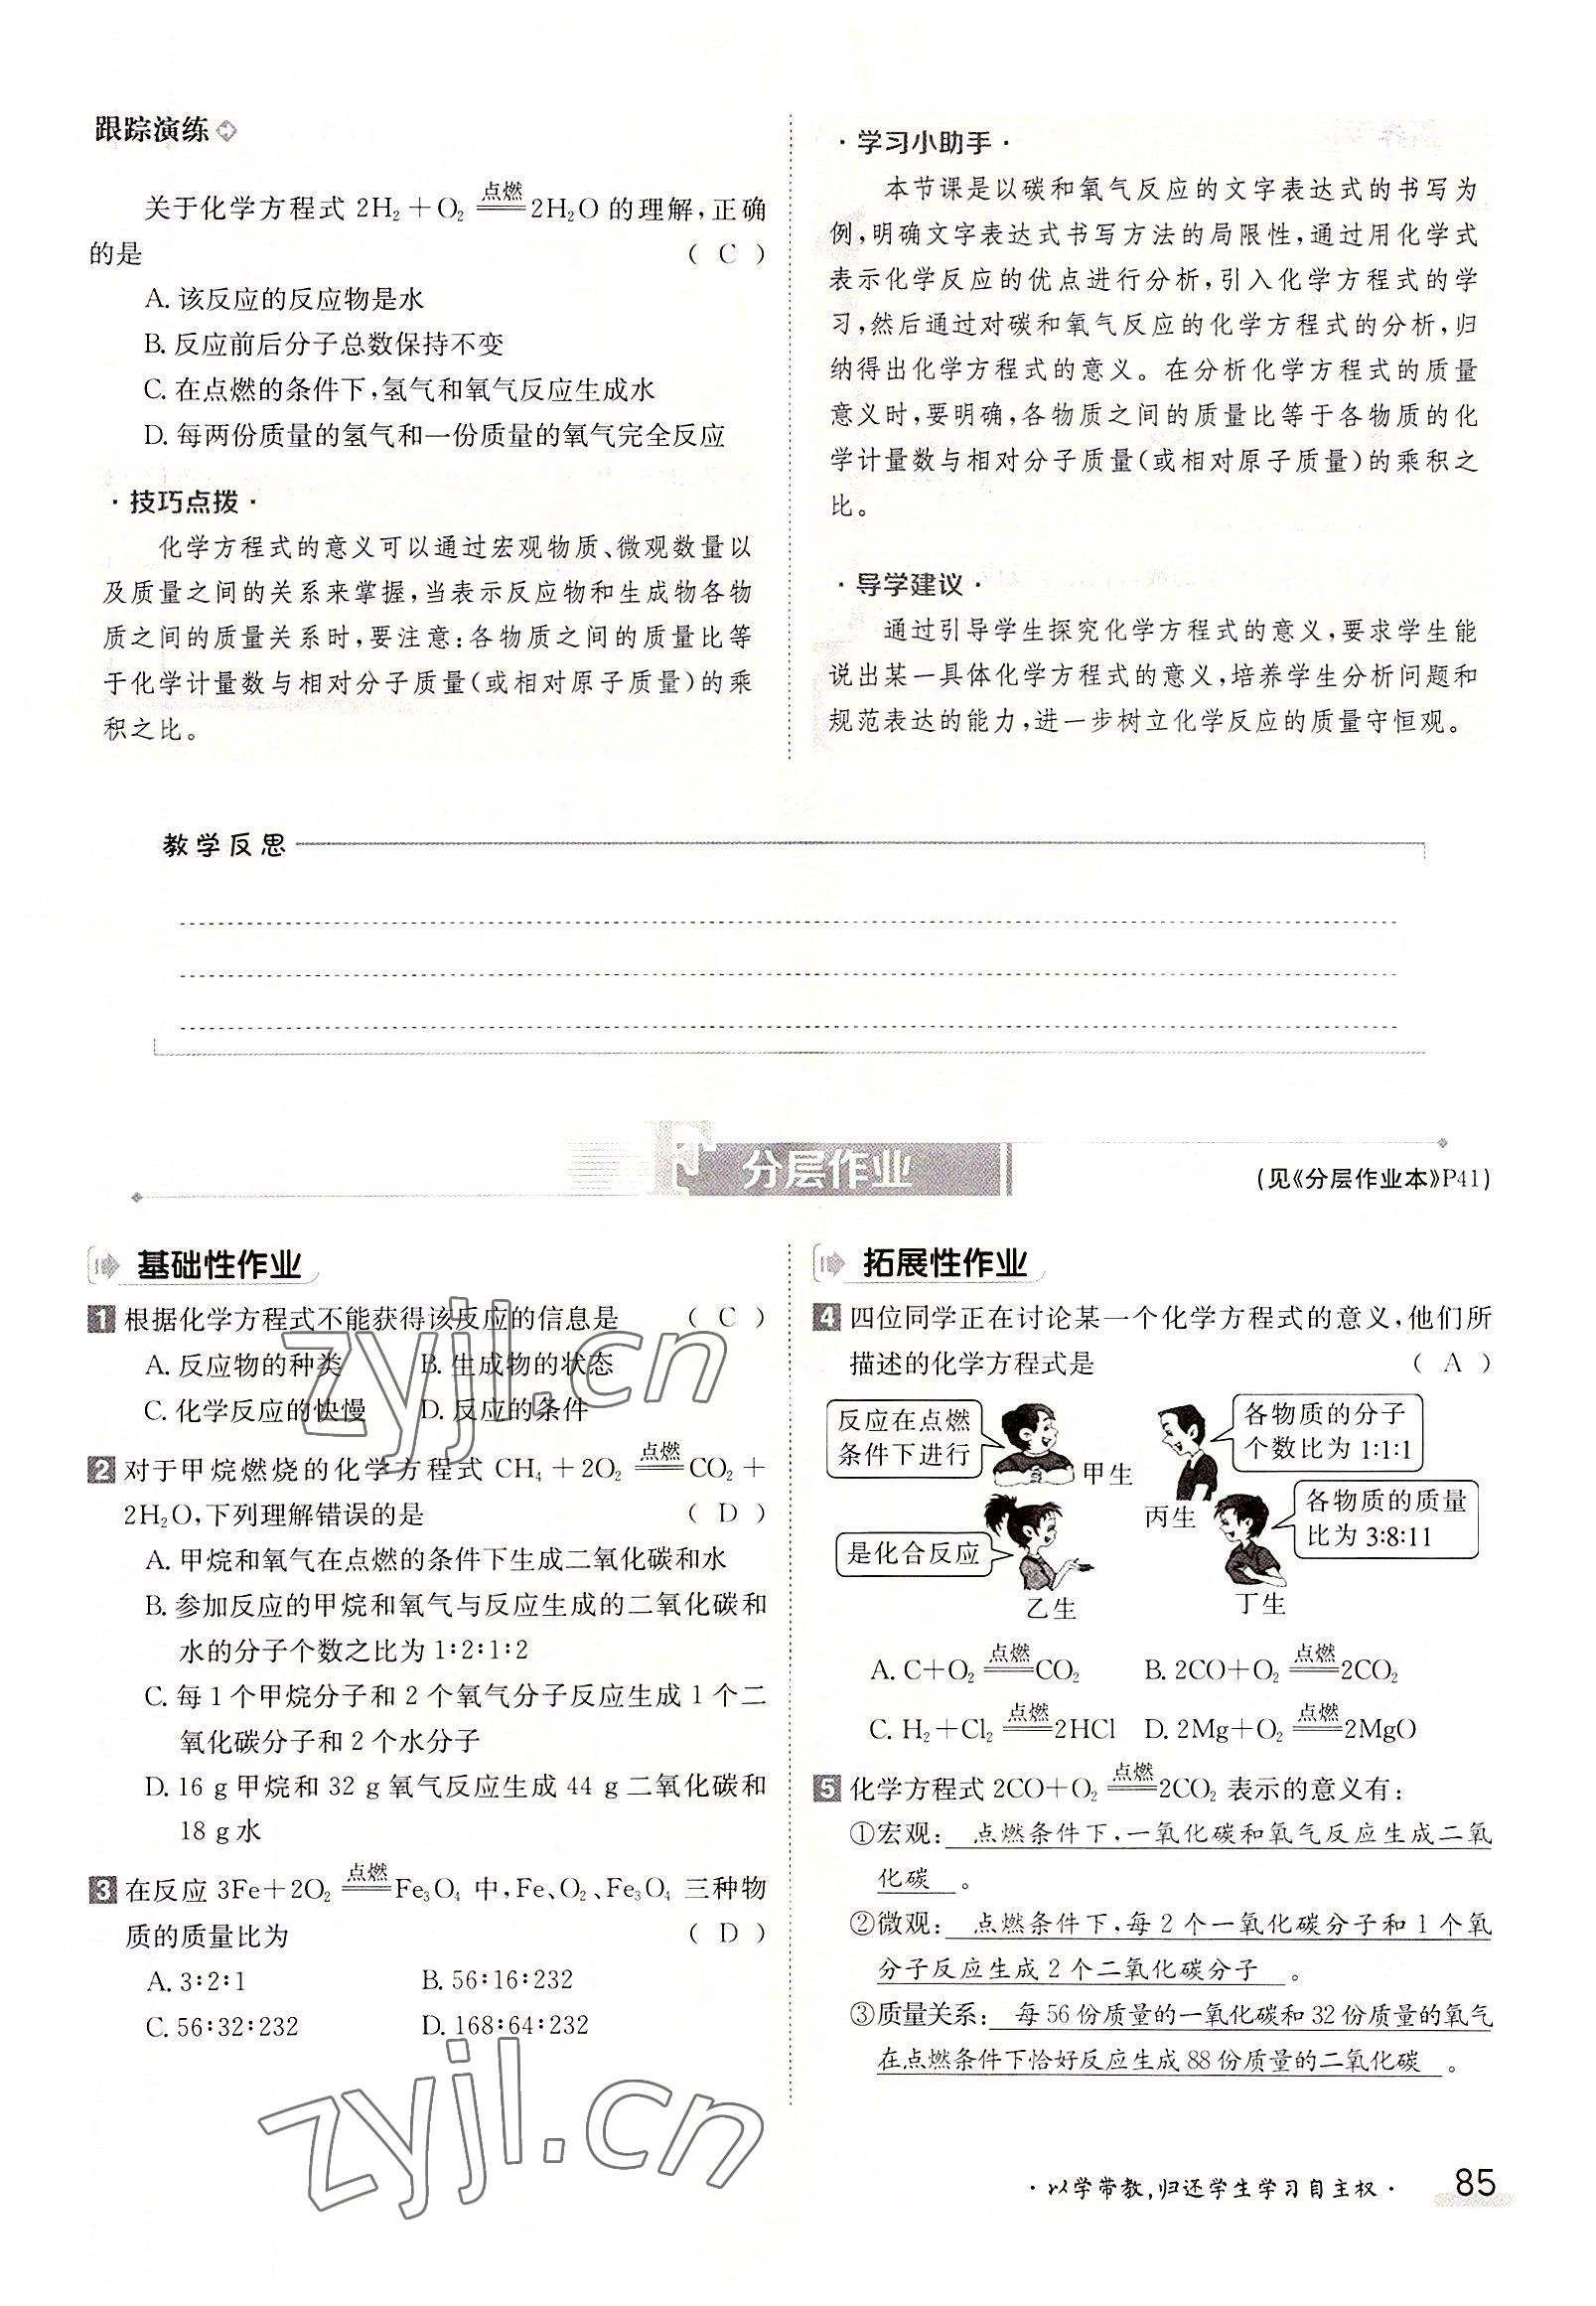 跟踪演练
关于化学方程式 2H₂+O₂ 点燃 2H₂O 的理解,正确
的是 ( C )
A. 该反应的反应物是水
B. 反应前后分子总数保持不变
C. 在点燃的条件下,氢气和氧气反应生成水
D. 每两份质量的氢气和一份质量的氧气完全反应
·技巧点拨·
化学方程式的意义可以通过宏观物质、微观数量以
及质量之间的关系来掌握,当表示反应物和生成物各物
质之间的质量关系时,要注意:各物质之间的质量比等
于化学计量数与相对分子质量(或相对原子质量)的乘
积之比。
·学习小助手·
本节课是以碳和氧气反应的文字表达式的书写为
例,明确文字表达式书写方法的局限性,通过用化学式
表示化学反应的优点进行分析,引入化学方程式的学
习,然后通过对碳和氧气反应的化学方程式的分析,归
纳得出化学方程式的意义。在分析化学方程式的质量
意义时,要明确,各物质之间的质量比等于各物质的化
学计量数与相对分子质量(或相对原子质量)的乘积之
比。
·导学建议·
通过引导学生探究化学方程式的意义,要求学生能
说出某一具体化学方程式的意义,培养学生分析问题和
规范表达的能力,进一步树立化学反应的质量守恒观。
教学反思
分层作业
(见《分层作业本》P41)
基础性作业
1 根据化学方程式不能获得该反应的信息是 ( C )
A. 反应物的种类 B. 生成物的状态
C. 化学反应的快慢 D. 反应的条件
2 对于甲烷燃烧的化学方程式 CH₄+2O₂ 点燃 CO₂+
2H₂O,下列理解错误的是 ( D )
A. 甲烷和氧气在点燃的条件下生成二氧化碳和水
B. 参加反应的甲烷和氧气与反应生成的二氧化碳和
水的分子个数之比为 1∶2∶1∶2
C. 每 1 个甲烷分子和 2 个氧气分子反应生成 1 个二
氧化碳分子和 2 个水分子
D. 16 g 甲烷和 32 g 氧气反应生成 44 g 二氧化碳和
18 g 水
3 在反应 3Fe+2O₂ 点燃 Fe₃O₄ 中,Fe、O₂、Fe₃O₄ 三种物
质的质量比为 ( D )
A. 3∶2∶1 B. 56∶16∶232
C. 56∶32∶232 D. 168∶64∶232
拓展性作业
4 四位同学正在讨论某一个化学方程式的意义,他们所
描述的化学方程式是 ( A )
反应在点燃
条件下进行
甲生
各物质的分子
个数比为 1:1:1
丙生
是化合反应
乙生
各物质的质量
比为 3:8:11
丁生
A. C+O₂ 点燃 CO₂ B. 2CO+O₂ 点燃 2CO₂
C. H₂+Cl₂ 点燃 2HCl D. 2Mg+O₂ 点燃 2MgO
5 化学方程式 2CO+O₂ 点燃 2CO₂ 表示的意义有:
①宏观: 点燃条件下,一氧化碳和氧气反应生成二氧
化碳 。
②微观: 点燃条件下,每 2 个一氧化碳分子和 1 个氧
分子反应生成 2 个二氧化碳分子 。
③质量关系: 每 56 份质量的一氧化碳和 32 份质量的氧气
在点燃条件下恰好反应生成 88 份质量的二氧化碳 。
zyjl.cn
zyjl.cn
·以学带教,归还学生学习自主权· 85